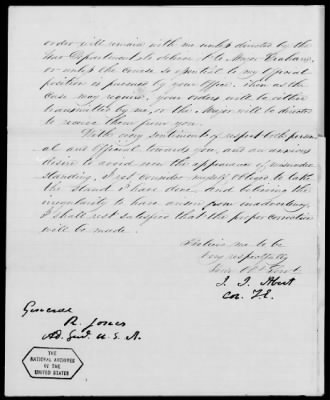 order will remain with me unless directed by the
War Department to deliver it to Major Graham,
or unless the course so essential to my official
position is pursued by your office. Then as the
case may require, your orders will be either
transmitted by me, or the Major will be directed
to receive them from you.
With every sentiment of respect both person-
al and official towards you, and an anxious
desire to avoid even the appearance of misunder
standing, I yet consider myself obliged to take
the stand I have done and believing the
irregularity to have arisen from inadvertency,
I shall rest satisfied that the proper correction
will be made.
Believe me to be
Very respectfully
Your Obt Servt
J. J. Abert
Col. T. E.
General
R. Jones
Ad. Genl. U. S. A.
THE
NATIONAL ARCHIVES
OF THE
UNITED STATES